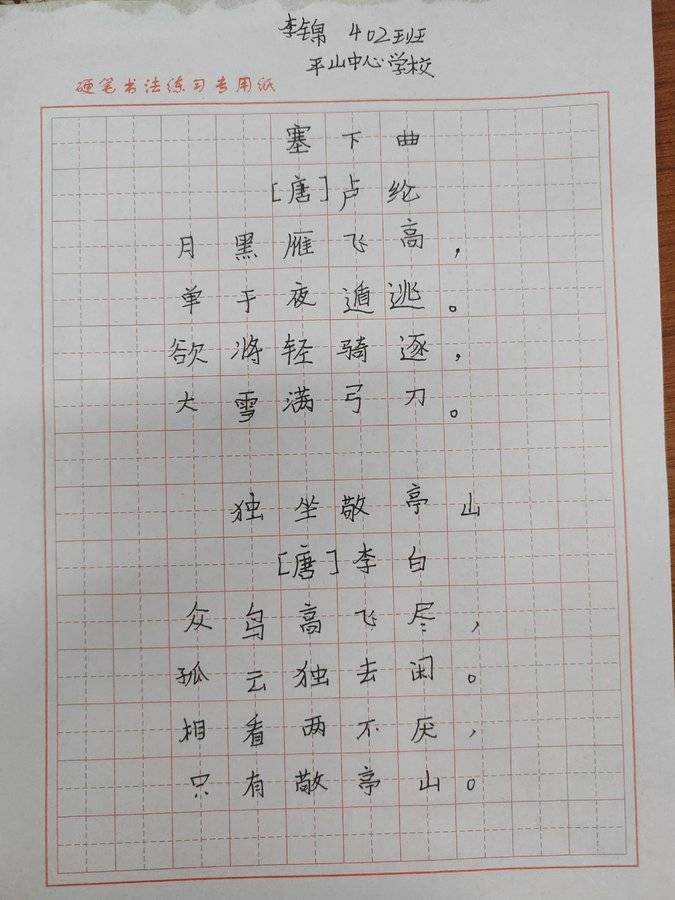 李锦 402班
平山中心学校
硬笔书法练习专用纸
塞下曲
[唐]卢纶
月黑雁飞高，
单于夜遁逃。
欲将轻骑逐，
大雪满弓刀。
独坐敬亭山
[唐]李白
众鸟高飞尽，
孤云独去闲。
相看两不厌，
只有敬亭山。